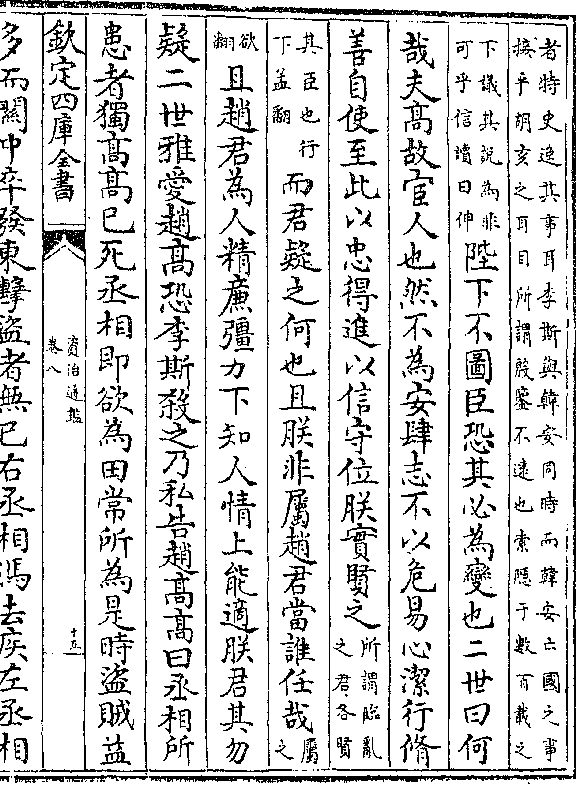 者時史逸其事耳李斯與韓安同時而韓安亡國之事
接乎胡亥之耳目所謂殷鑒不遠也索隱于數百載之
下議其說為非
可乎信讀曰伸
陛下不圖臣恐其必為變也二世曰何
哉夫髙故宦人也然不為安肆志不以危易心潔行脩
善自使至此以忠得進以信守位朕實賢之
所謂臨亂
之君各賢
其臣也行
下孟翻
而君疑之何也且朕非屬趙君當誰任哉
屬之
欲翻
且趙君為人精㢘彊力下知人情上能適朕君其勿
疑二世雅愛趙髙恐李斯殺之乃私告趙髙髙曰丞相所
患者獨髙髙已死丞相即欲為田常所為是時盜賊益
欽定四庫全書
資治通鑑
卷八
十五
多而關中卒發東擊盜者無已右丞相馮去疾左丞相